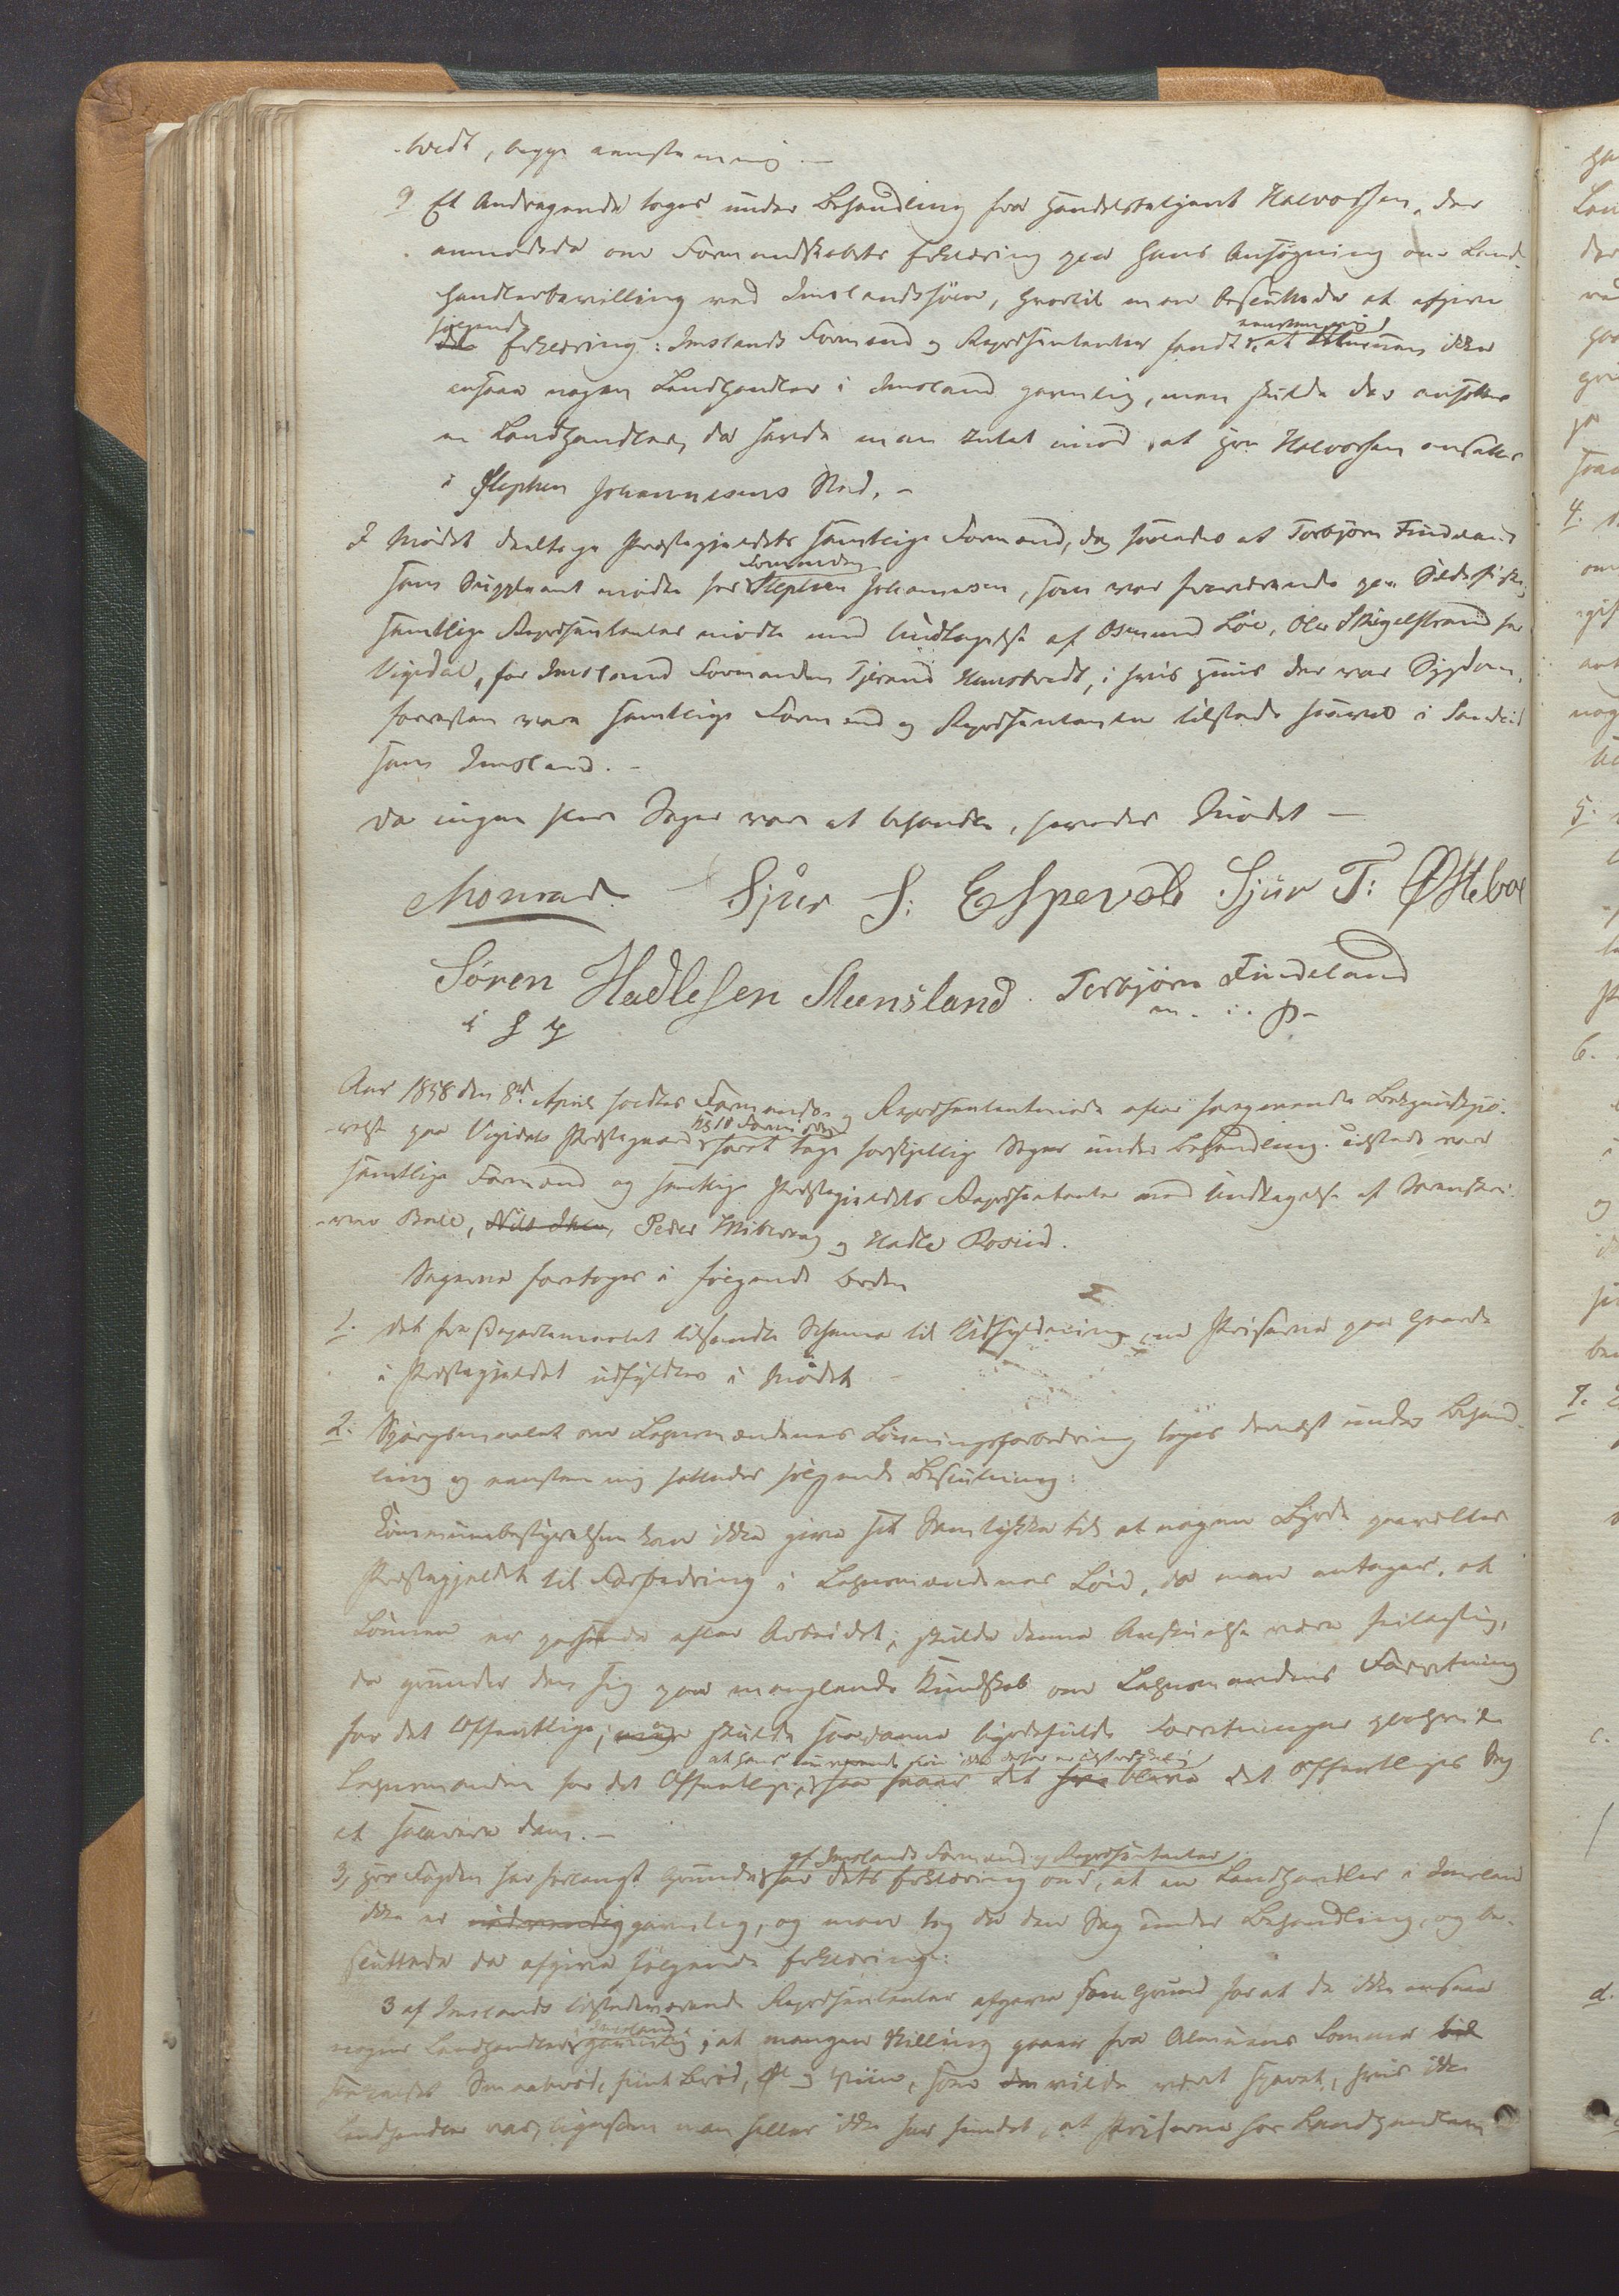 -vedt, begge eenstemmig. —
9 Et Andragende toges under Behandling fra Handelsbetjent Halvorsen, der
anmodede om Formandskabets Erklæring paa hans Ansøgning om Land-
handlerbevilling ved Imslandssjøen, hvortil man besluttede at afgive
følgende Erklæring: Imslands Formænd og Repræsentanter fandt eenstemmig, at Almuen ikke
ansaae nogen Landhandler i Imsland gavnlig, men skulde der ansættes
en Landhandler, da havde man Intet imod, at Hr. Halvorsen ansattes
i Stephen Johannesens Sted. —
I Mødet deeltoge Præstegjeldets samtlige Formænd, dog saaledes at Torbjørn Findeland
som Suppleant mødte for Formanden Stephen Johannesen, som var fraværende paa Sildefiske,
samtlige Repræsentanter mødte med Undtagelse af Osmund Løie, Ole Skigelstrand for
Vigedal, for Imsland Formanden Tjerand Hamstvedt, i hvis Huus der var Sygdom,
forresten vare samtlige Formænd og Repræsentanter tilstede saavel i Sandeid
som Imsland. —
Da ingen flere Sager var at behandle, hævedes Mødet —
Monrad. Sjur S: Espevold Sjur T: Østeboe
Sören Hadlesen Steensland. Torbjörn Findeland
m. i. P-
Aar 1858 den 8de April holdtes Formands- og Repræsentantmøde efter foregaaende Bekjendtgjø-
relse paa Vigedals Præstegaard for at tage forskjellige Sager under Behandling. Tilstede var
samtlige Formænd og samtlige Præstegjeldets Repræsentanter med Undtagelse af Svend
Bale, Nils Ihle, Peder Mikkels og Hadle Rosiid.
Sagerne foretoges i følgende Orden
1. Det fra Departementet tilsendte Schema til Udfyldning om Priserne paa Gaarde
i Præstegjeldet udfyldtes i Mødet
2. Spørgsmaalet om Lensmændenes Lønningsforbedring toges dernæst under Behand-
ling og eenstemmig fattedes følgende Beslutning:
Kommunebestyrelsen kan ikke give sit Samtykke til at nogen Byrde paavæltes
Præstegjeldet til Forbedring i Lensmændenes Løn, da man antager, at
Lønnen er passende efter Arbeidet; skulde denne Anskuelse være feilagtig,
da grunder den sig paa manglende Kundskab om Lensmandens Forretning
for det Offentlige; skulde saadanne byrdefulde Forretninger paahvile
Lensmanden for det Offentlige, at hans nuværende Løn ikke derfor er tilstrækkelig, saa faaer det blive det Offentliges Sag
at salarere dem. —
3, Hr Fogden har forlangt Grunde af Imslands Formænd og Repræsentanter for dets Erklæring om, at en Landhandler i Imsland
ikke er nødvendig gavnlig, og man tog da den Sag under Behandling, og be-
sluttede da afgive følgende Erklæring:
3 af Imslands tilstedeværende Repræsentanter afgave som Grund for at de ikke ansaae
nogen Landhandler i Imsland gavnlig, at mangen Skilling gaaer fra Almuens Lomme til
Smaabrød, fiint Brød, Øl og Viin, som vilde været sparet, hvis ikke
Landhandler var, ligesom man heller ikke har fundet, at Priserne hos Landhandleren